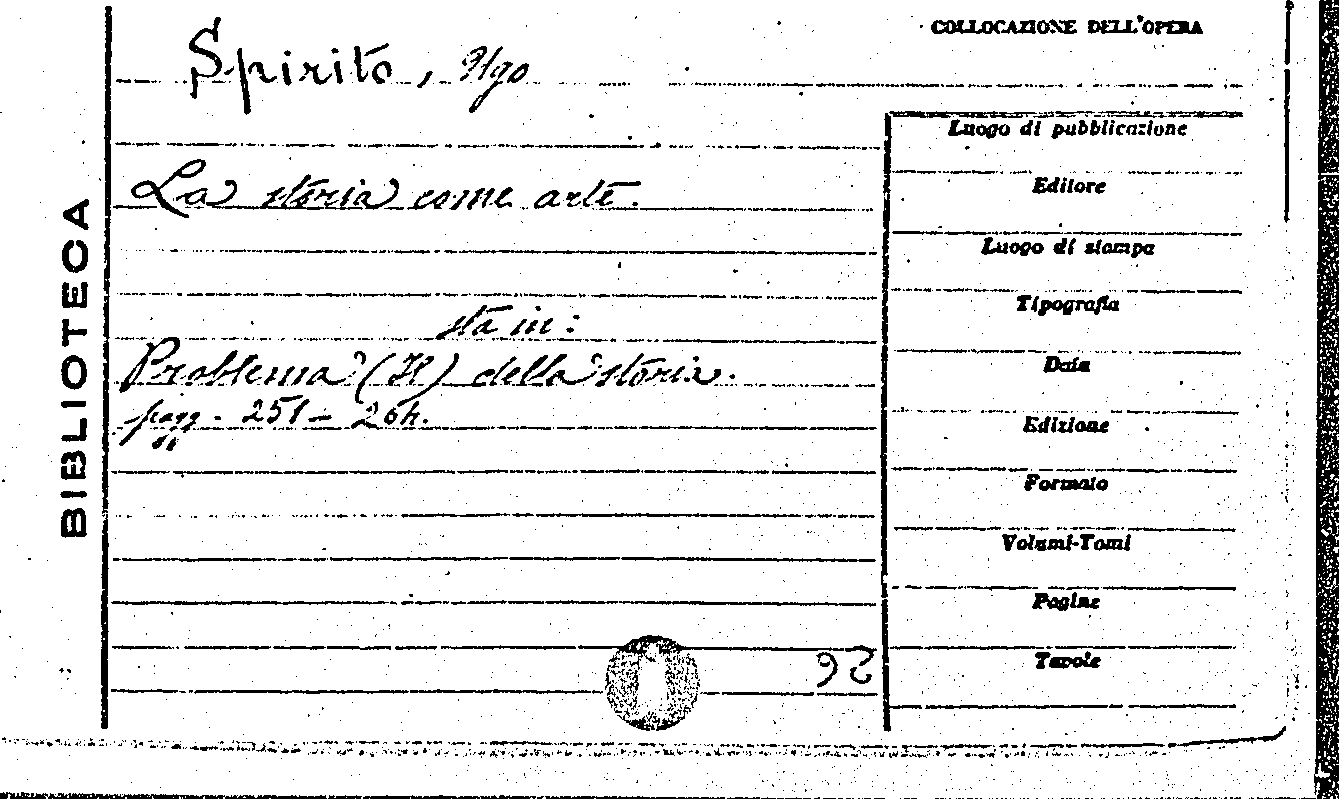 COLLOCAZIONE DELL'OPERA
Spirito, Ugo
La storia come arte.
sta in:
Problema (Il) della storia.
pagg. 251 - 264.
BIBLIOTECA
Luogo di pubblicazione
Editore
Luogo di stampa
Tipografia
Data
Edizione
Formato
Volumi-Tomi
Pagine
Tavole